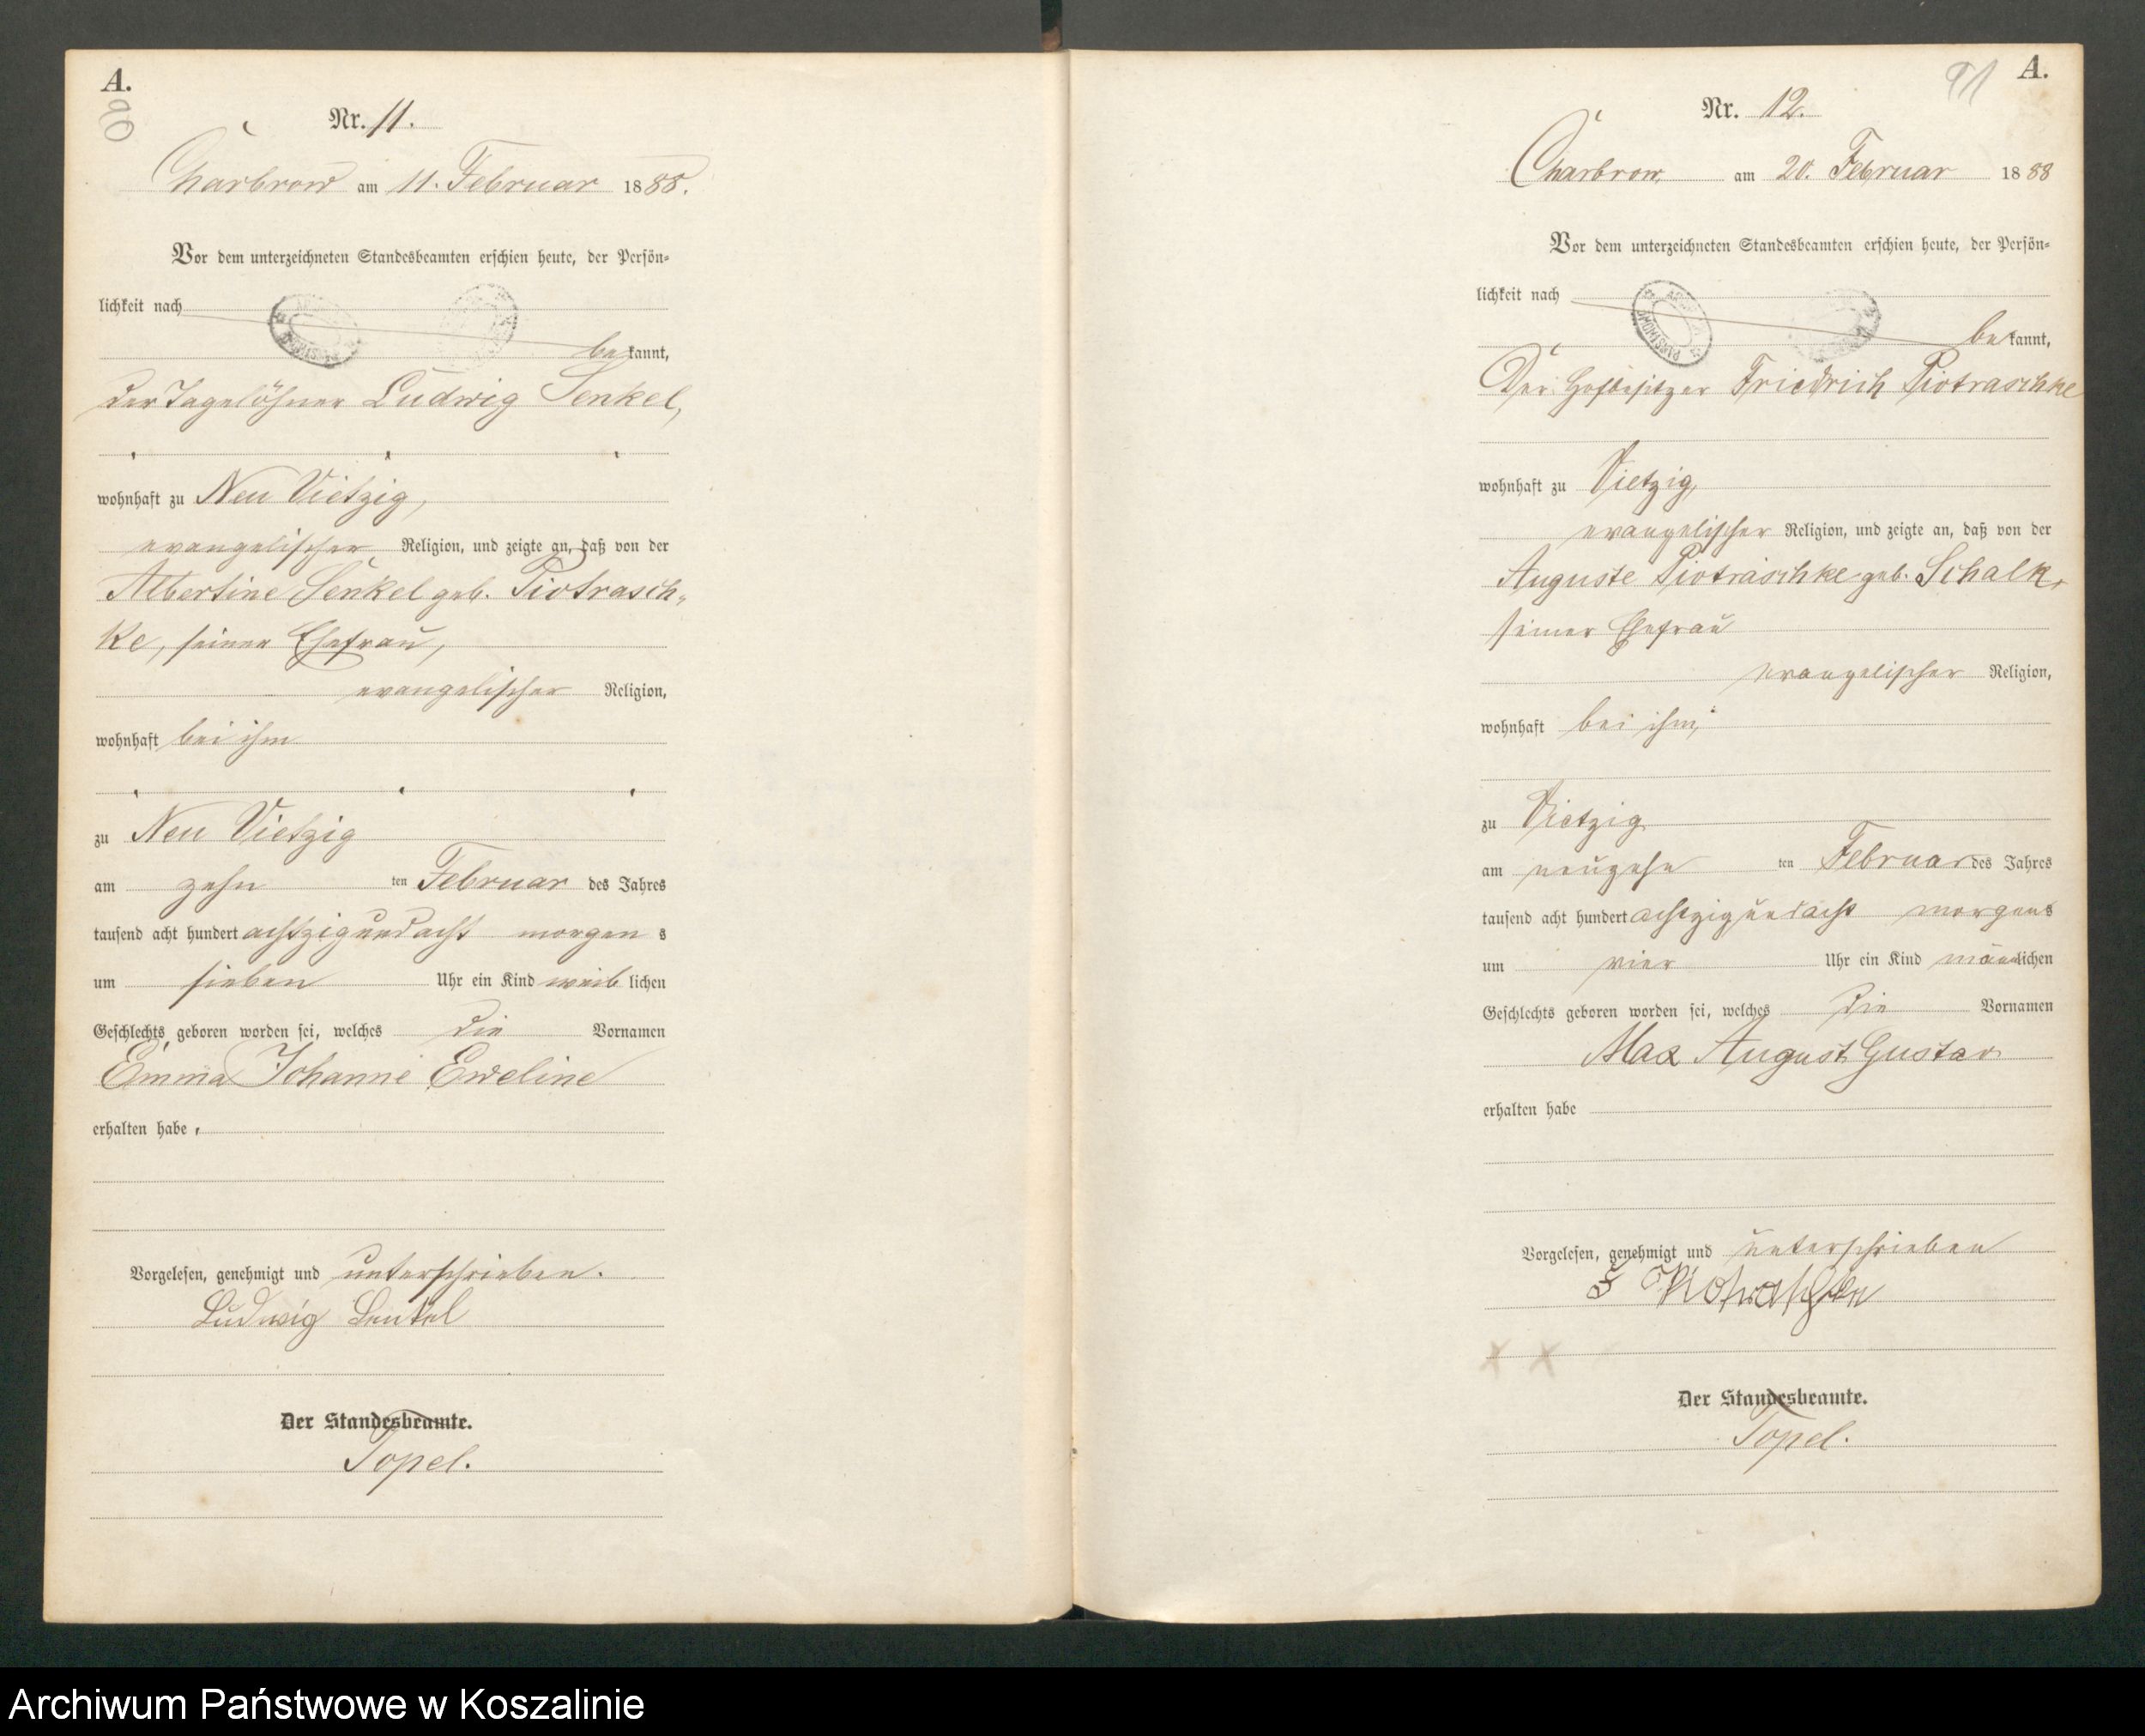 A.
Nr. 11.
Charbrow am 11. Februar 1888.
Vor dem unterzeichneten Standesbeamten erschien heute, der Persön-
lichkeit nach
bekannt,
der Tagelöhner Ludwig Senkel,
wohnhaft zu Neu Vietzig,
evangelischer Religion, und zeigte an, daß von der
Albertine Senkel geb. Piotrasch-
ke, seiner Ehefrau,
evangelischer Religion,
wohnhaft bei ihm
zu Neu Vietzig
am zehn ten Februar des Jahres
tausend acht hundert achtzigundacht morgens
um sieben Uhr ein Kind weiblichen
Geschlechts geboren worden sei, welches die Vornamen
Emma Johanne Eweline
erhalten habe.
Vorgelesen, genehmigt und unterschrieben.
Ludwig Senkel
Der Standesbeamte.
Topel.
91 A.
Nr. 12.
Charbrow am 20. Februar 1888
Vor dem unterzeichneten Standesbeamten erschien heute, der Persön-
lichkeit nach
bekannt,
Der Hofbesitzer Friedrich Piotraschke
wohnhaft zu Vietzig,
evangelischer Religion, und zeigte an, daß von der
Auguste Piotraschke geb. Schalk,
seiner Ehefrau
evangelischer Religion,
wohnhaft bei ihm,
zu Vietzig
am neunzehn ten Februar des Jahres
tausend acht hundert achtzigundacht morgens
um vier Uhr ein Kind männlichen
Geschlechts geboren worden sei, welches die Vornamen
Max August Gustav
erhalten habe
Vorgelesen, genehmigt und unterschrieben
F Piotraschke
Der Standesbeamte.
Topel.
Archiwum Państwowe w Koszalinie